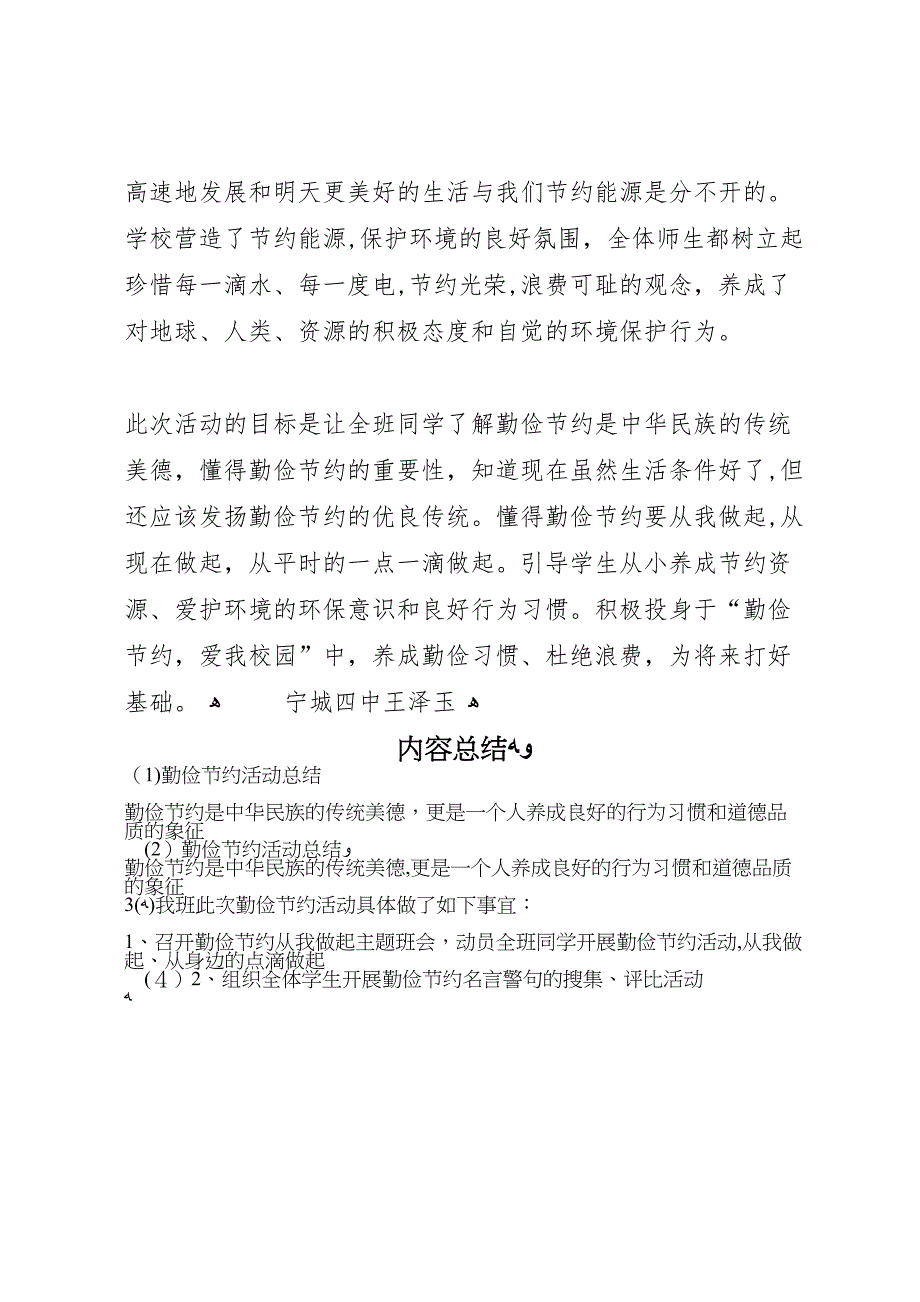 高速地发展和明天更美好的生活与我们节约能源是分不开的。
学校营造了节约能源,保护环境的良好氛围，全体师生都树立起
珍惜每一滴水、每一度电,节约光荣,浪费可耻的观念，养成了
对地球、人类、资源的积极态度和自觉的环境保护行为。
此次活动的目标是让全班同学了解勤俭节约是中华民族的传统
美德，懂得勤俭节约的重要性，知道现在虽然生活条件好了,但
还应该发扬勤俭节约的优良传统。懂得勤俭节约要从我做起,从
现在做起，从平时的一点一滴做起。引导学生从小养成节约资
源、爱护环境的环保意识和良好行为习惯。积极投身于“勤俭
节约，爱我校园”中，养成勤俭习惯、杜绝浪费，为将来打好
基础。 ﻫ 宁城四中王泽玉 ﻫ
内容总结
（1)勤俭节约活动总结
勤俭节约是中华民族的传统美德，更是一个人养成良好的行为习惯和道德品
质的象征
(2）勤俭节约活动总结
勤俭节约是中华民族的传统美德,更是一个人养成良好的行为习惯和道德品质
的象征
3(ﻪ)我班此次勤俭节约活动具体做了如下事宜：
1、召开勤俭节约从我做起主题班会，动员全班同学开展勤俭节约活动,从我做
起、从身边的点滴做起
(４）2、组织全体学生开展勤俭节约名言警句的搜集、评比活动
ﻪ